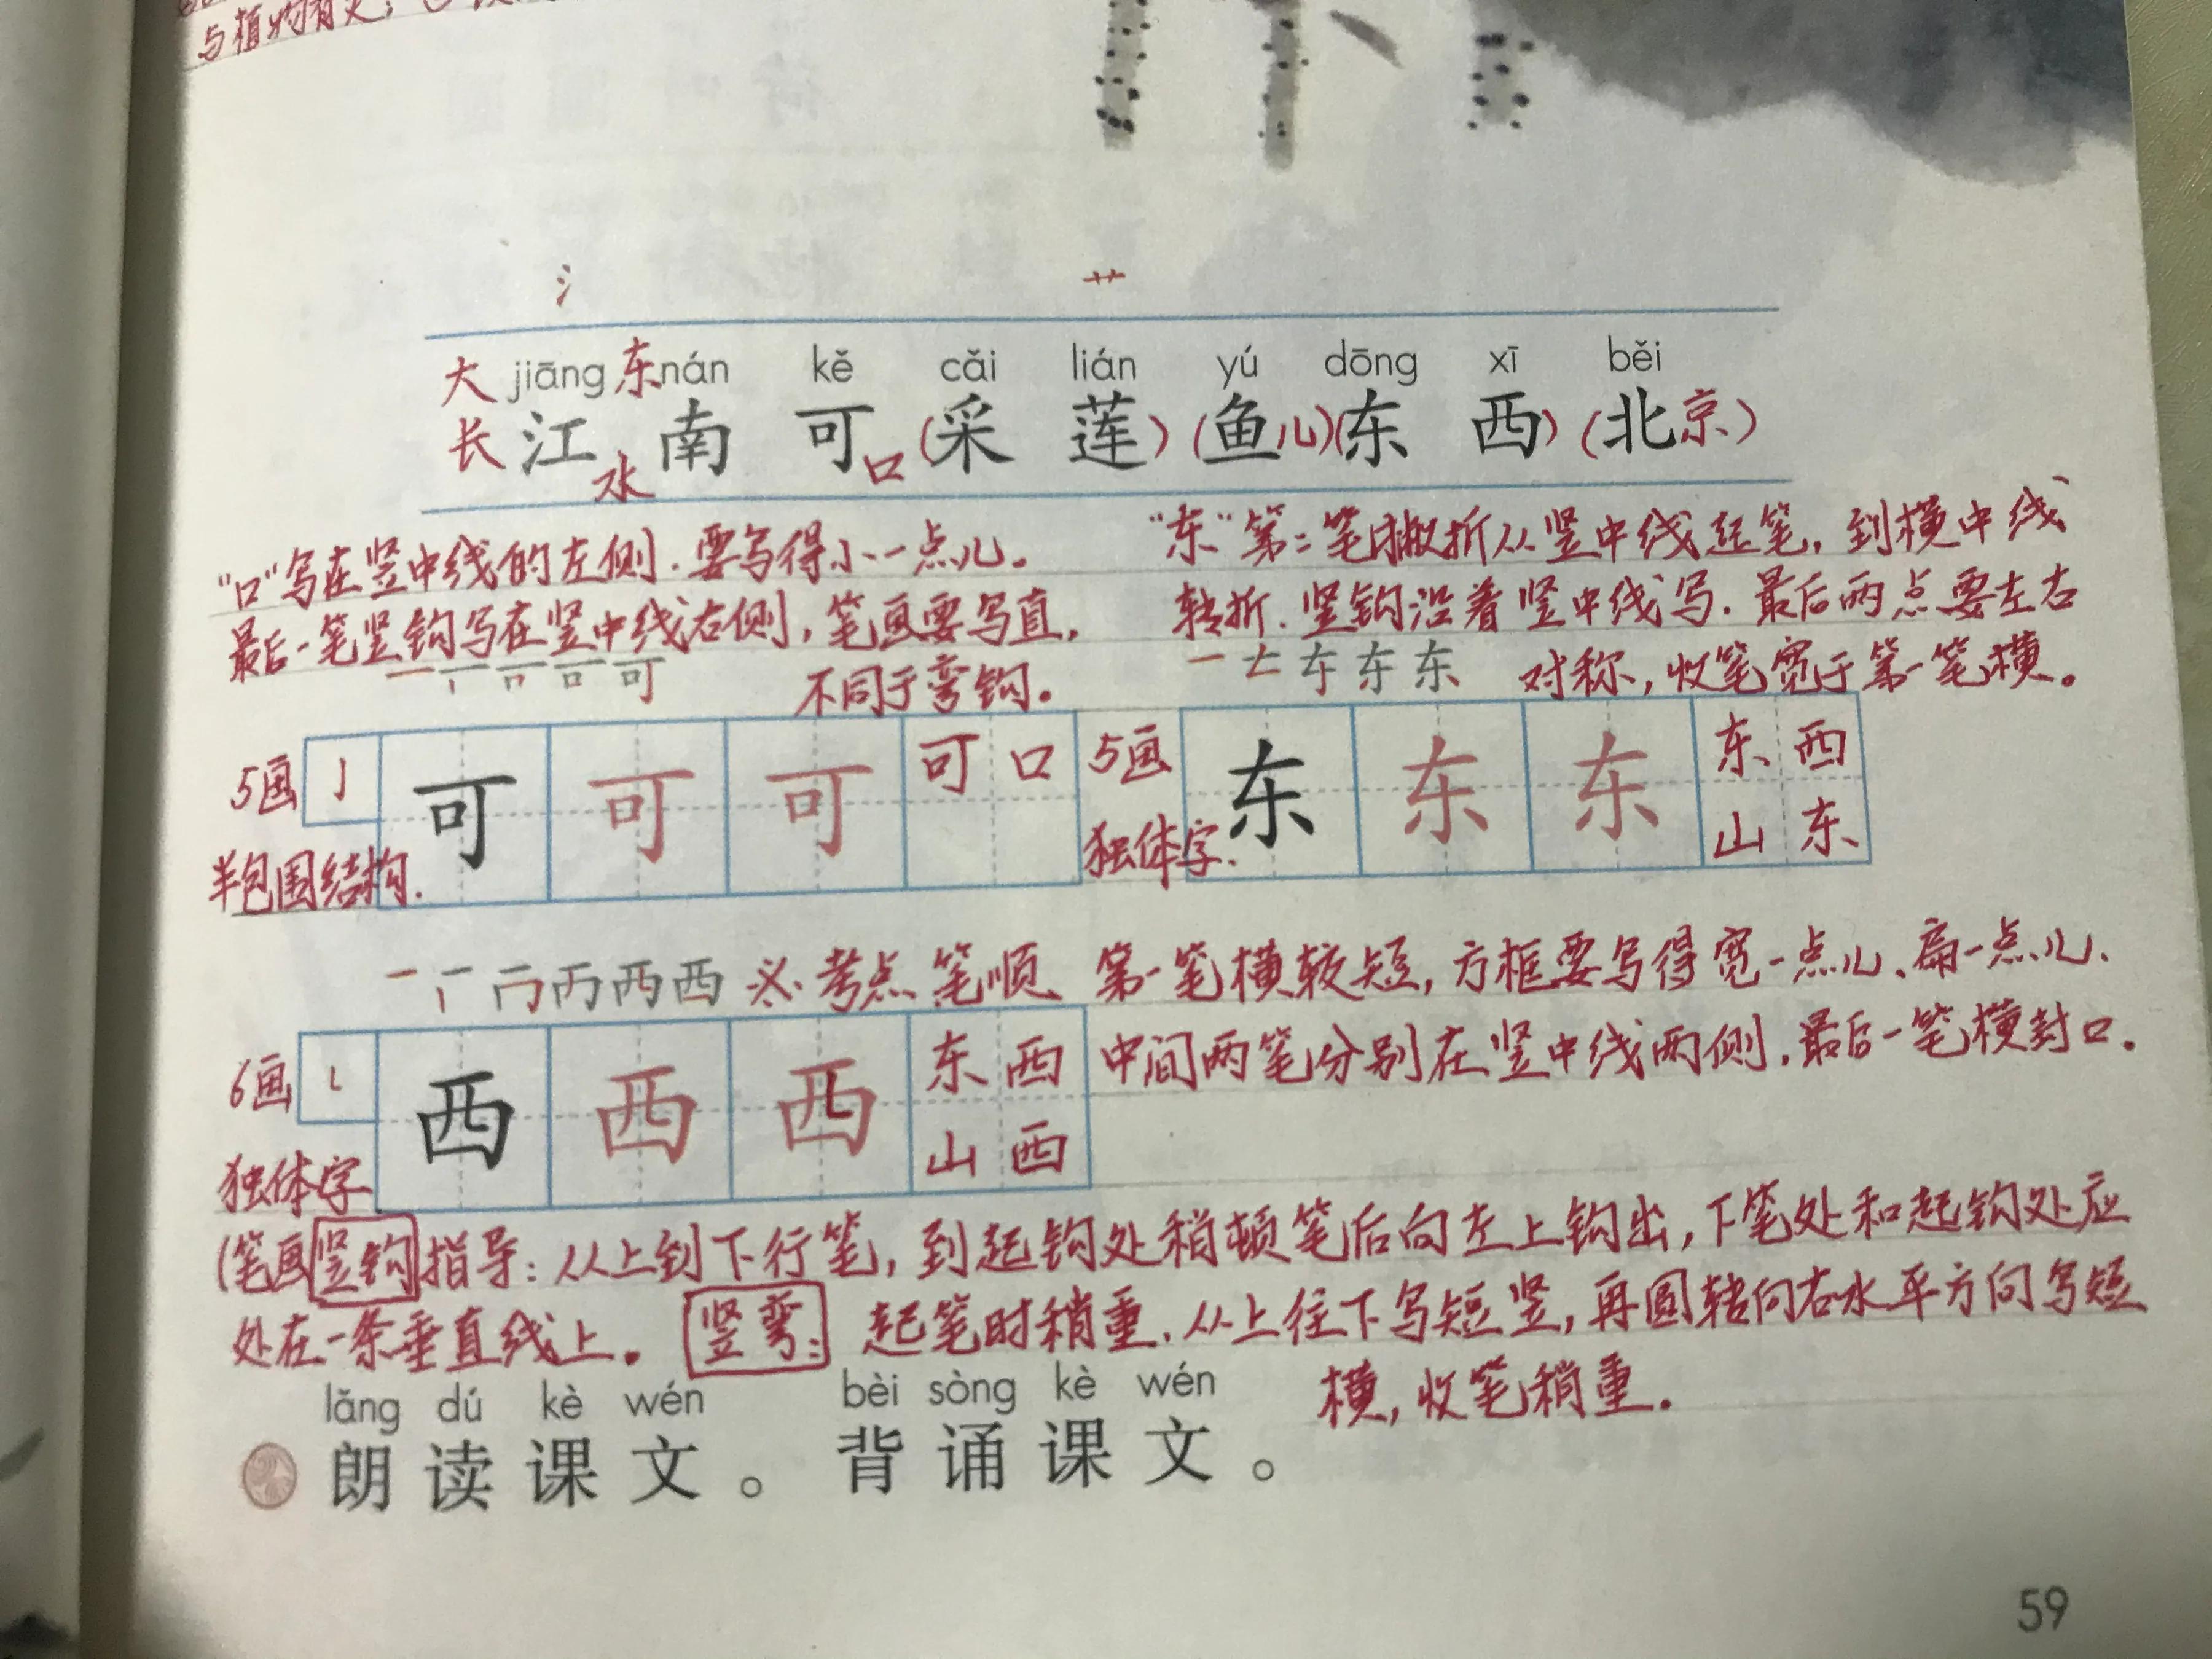 与植物有关
氵 艹
大 jiāng 东 nán kě cǎi lián yú dōng xī běi
长江水 南 可口 (采 莲) (鱼儿) (东 西) (北京)
"口"写在竖中线的左侧.要写得小一点儿。
最后一笔竖钩写在竖中线右侧,笔画要写直,
不同于弯钩。
"东"第二笔撇折从竖中线起笔,到横中线
转折.竖钩沿着竖中线写.最后两点要左右
对称,收笔宽于第一笔横。
可
东
5画 亅 可 可 可 可口
半包围结构.
5画 东 东 东 东西
独体字. 山东
西 必考点 笔顺 第一笔横较短,方框要写得宽一点儿、扁一点儿、
中间两笔分别在竖中线两侧.最后一笔横封口.
6画 西 西 西 东西
独体字 山西
(笔画竖钩指导:从上到下行笔,到起钩处稍顿笔后向左上钩出,下笔处和起钩处应
处在一条垂直线上。 竖弯: 起笔时稍重.从上往下写短竖,再圆转向右水平方向写短
横,收笔稍重.
lǎng dú kè wén bèi sòng kè wén
朗读课文。背诵课文。
59